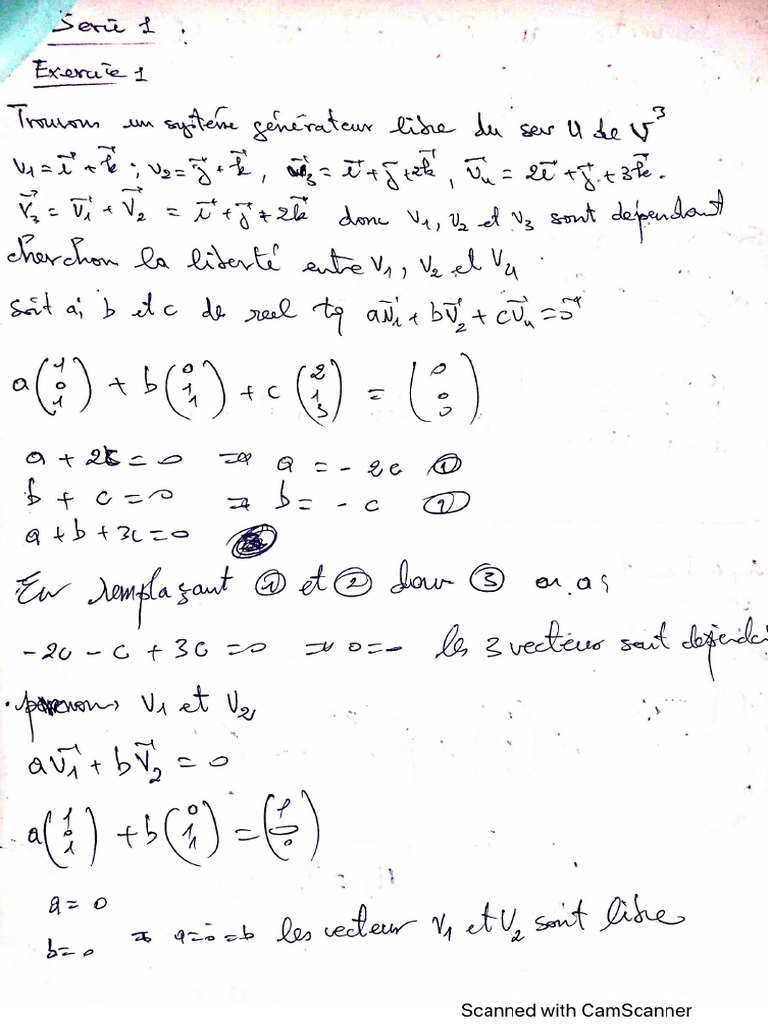 Serie 1 :
Exercice 1
Trouvons un système générateur libre du sev U de V³
v₁ = i⃗ + k⃗ ; v₂ = j⃗ + k⃗ , v⃗₃ = i⃗ + j⃗ + 2k⃗ , v⃗₄ = 2i⃗ + j⃗ + 3k⃗ .
V⃗₃ = V⃗₁ + V⃗₂ = i⃗ + j⃗ + 2k⃗ donc v₁, v₂ et v₃ sont dépendant
cherchon la liberté entre v₁, v₂ et v₄
soit a, b et c de reel tq av⃗₁ + bv⃗₂ + cv⃗₄ = 0⃗
a(1 0 1) + b(0 1 1) + c(2 1 3) = (0 0 0)
a + 2c = 0 ⇒ a = - 2c ①
b + c = 0 ⇒ b = - c ②
a + b + 3c = 0
En remplaçant ① et ② dans ③ on a :
-2c - c + 3c = 0 ⇒ 0 = les 3 vecteur sont
. prenons v₁ et v₂
av⃗₁ + bv⃗₂ = 0
a(1 0 1) + b(0 1 1) =
a = 0
b = 0 ⇒ a = 0 = b les vecteur v₁ et v₂ sont libre
Scanned with CamScanner